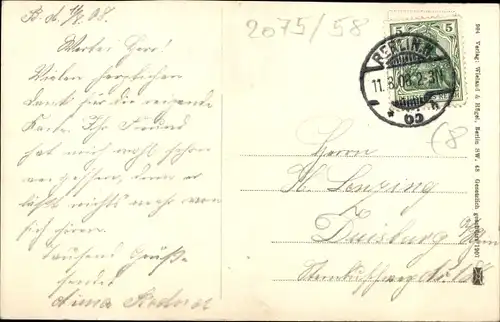 B. d. 11/8. 08.
Wertei Herr!
Vielen herzlichen
Dank für die reizende
Karte. Ihr Freund
hat mich wohl schon
vergessen, denn er
läßt nichts mehr von
sich hören.
Tausend Grüße
sendet
Anna
2075/58
5 5
BERLIN
11.8.08.2-3N
* 65
(8
Herrn
H. Lenzing
Duisburg
904 Verlag: Wieland & Hügel, Berlin SW. 48. Gesetzlich 1907